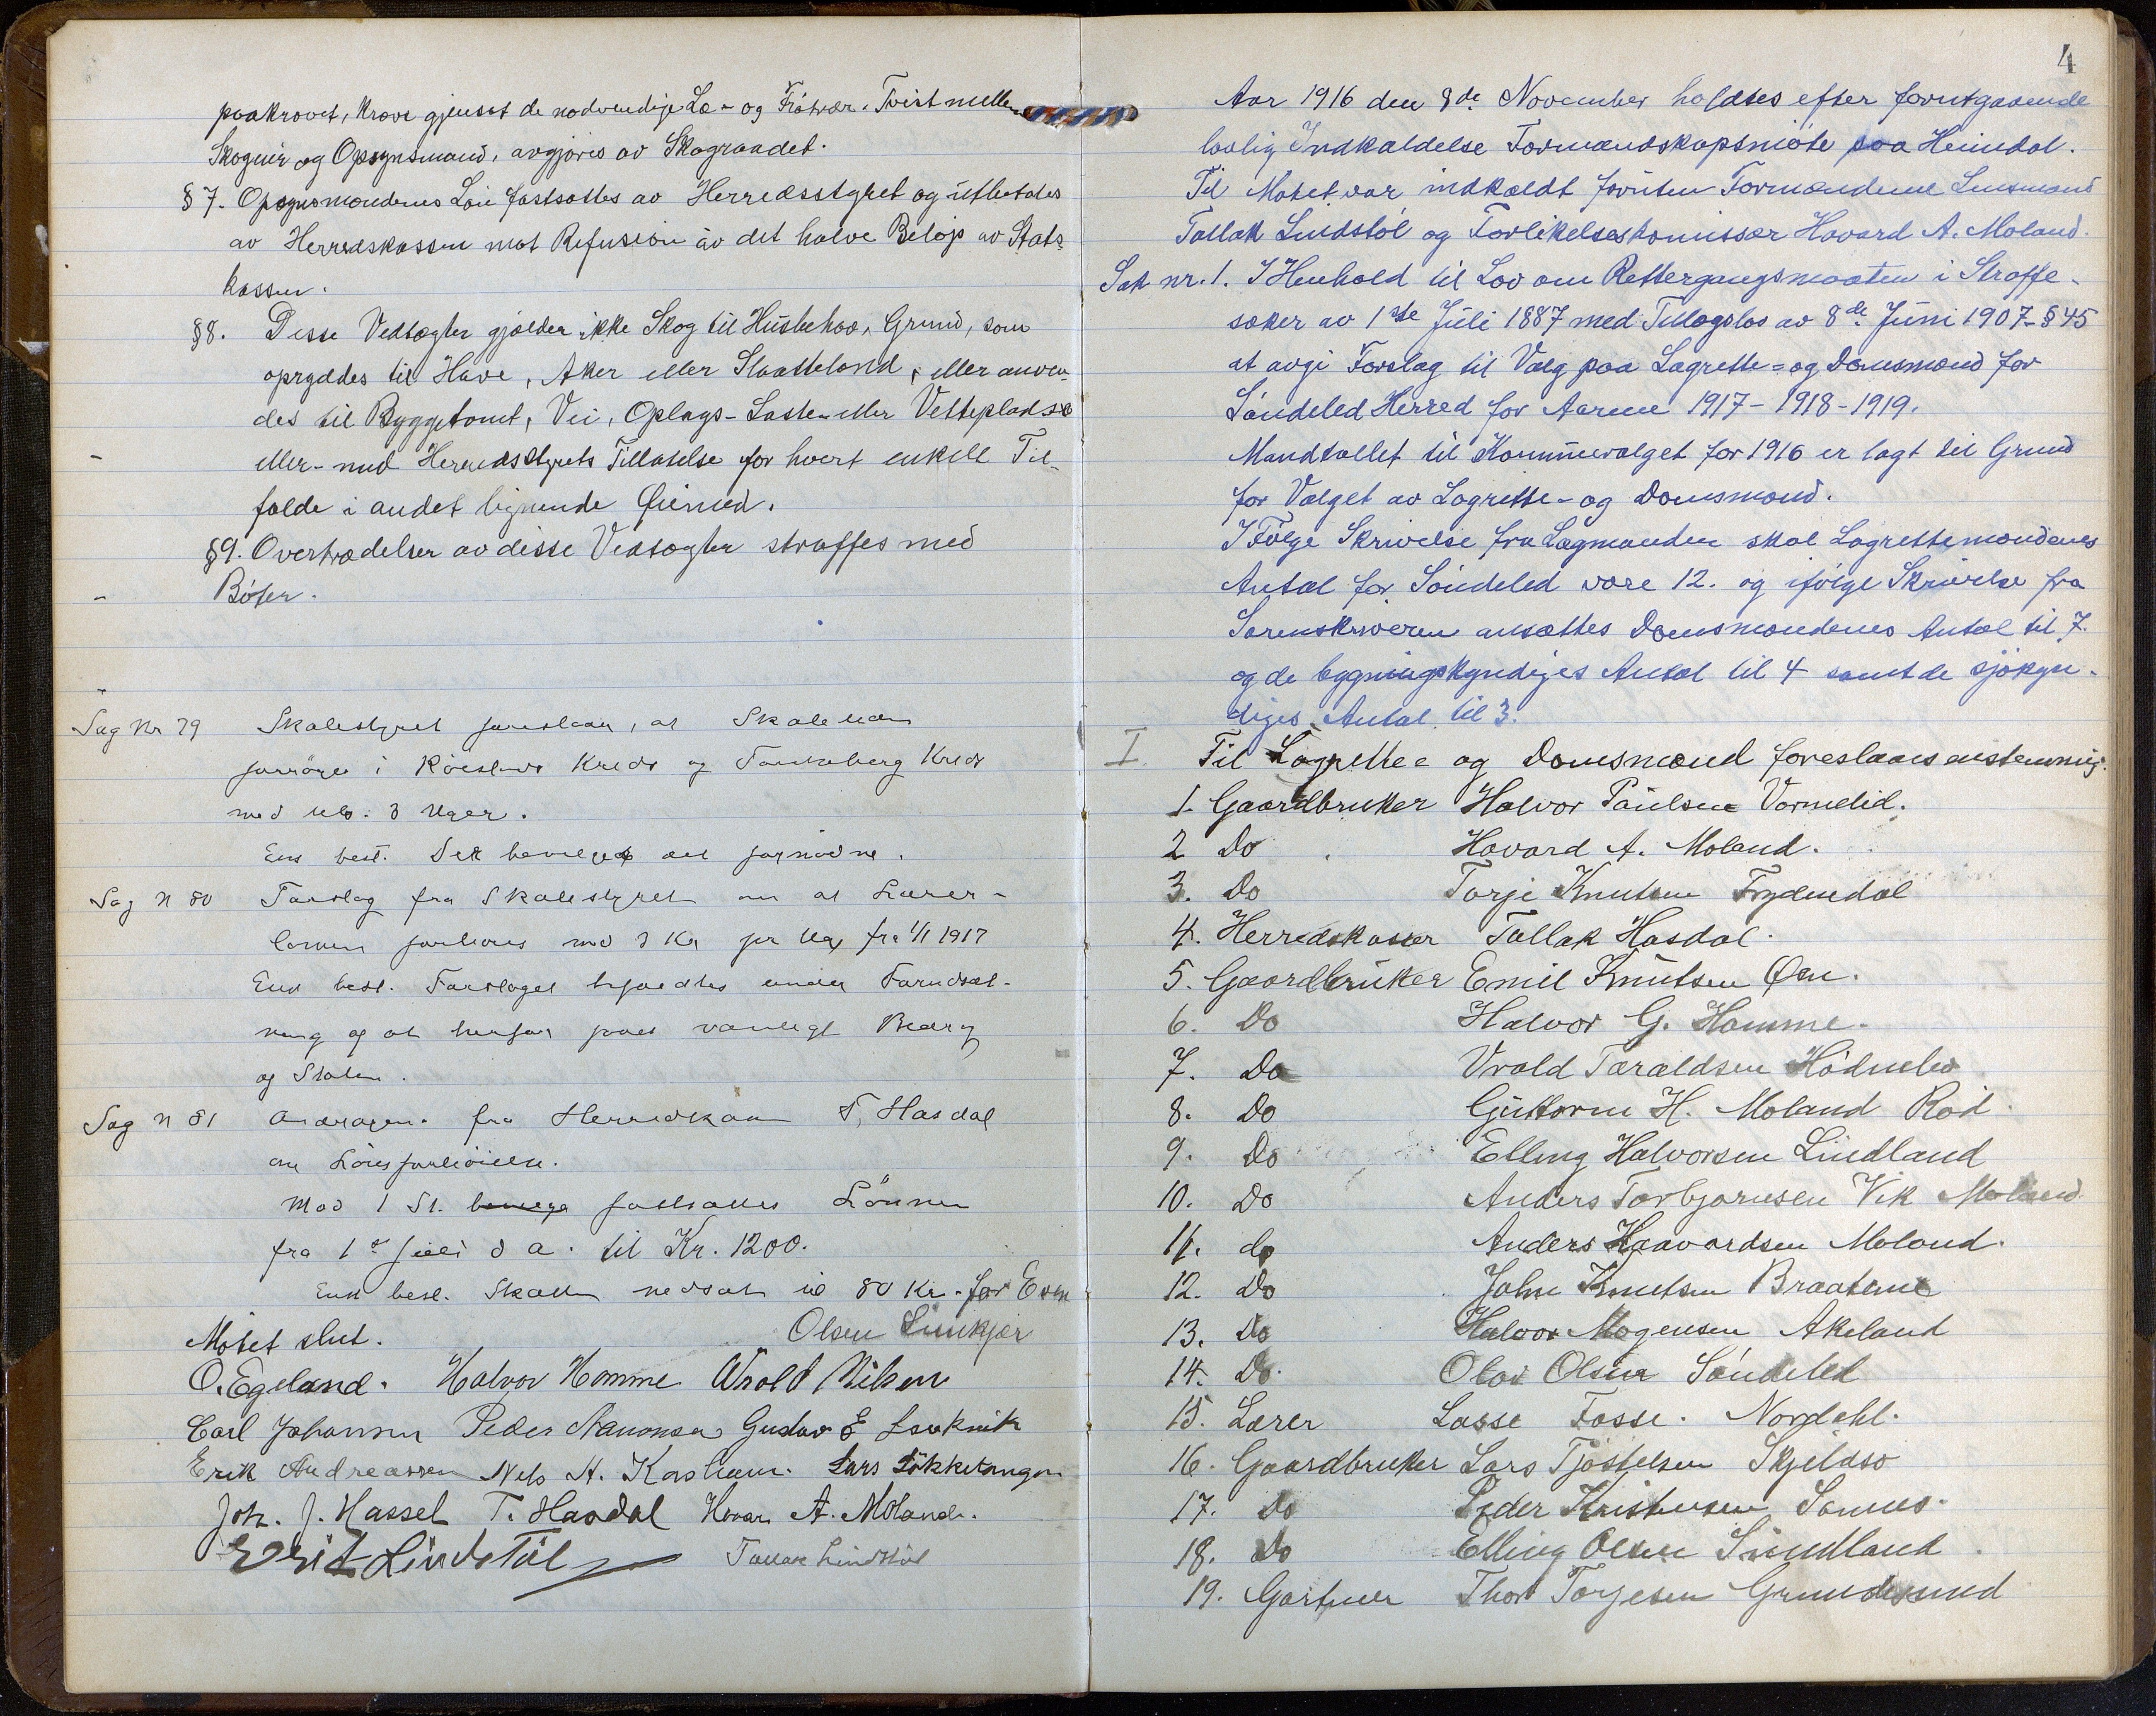 paakrævet, kræve gjensat de nødvendige Læ- og Frøtrær. Tvist mellem
Skogeier og Opsynsmand, avgjøres av Skograadet.
§ 7. Opsynsmændenes Løn fastsættes av Herredsstyret og utbetales
av Herredskassen mot Refusion av det halve Beløp av Stats
kassen.
§8. Disse Vedtægter gjælder ikke Skog til Husbehov, Grund, som
opryddes til Have, Aker eller Slaatteland, eller anven-
des til Byggetomt, Vei, Oplags- Laste- eller Vetteplads
eller med Herredsstyrets Tillatelse for hvert enkelt Til-
fælde i andet lignende Øiemed.
§9. Overtrædelser av disse Vedtægter straffes med
Bøter.
Sag Nr 79 Skolestyret foreslaar, at Skoletiden
forøges i Røisland Kreds og Kreds
med 3 Uger.
Ens. besl. Det bevilges det fornødne.
Sag N 80 Forslag fra Skolestyret om at Lærer-
lønnen forhøies med 3 Kr pr Uge fra 1/1 1917
Ens besl. Forslaget under Forudsæt-
ning og at vanligt Bidrag
og Staten.
Sag N 81 fra Herredskas T. Hasdal
om Lønsforhøielse.
Mod 1 St. fastsattes Lønnen
fra 1ste Juli d a. til Kr. 1200.
Ens besl. Skatten nedsat til 80 Kr. for Even
Møtet slut. Olsen Linkjær
O. Egeland. Halvor Homme Wrold Nilsen
Carl Johansen Peder Aanonsen Gustav E
Erik Andreassen Nels H. Lars Løkketangen
Joh. J. Hassel T. Hasdal Hovar A. Moland.
Lindstøl Tallak Lindstøl
4
Aar 1916 den 8de November holdtes efter forutgaaende
lovlig Indkaldelse Formandskapsmøte paa Heimdal.
Til Møtet var indkaldt foruten Formændene Lensmand
Tallak Lindstøl og Forlikelseskomissær Hovard A. Moland.
Sak nr. 1. I Henhold til Lov om Rettergangsmaaten i Straffe-
saker av 1ste Juli 1887 med Tillægslov av 8de Juni 1907 - § 45
at avgi Forslag til Valg paa Lagrette- og Domsmænd for
Søndeled Herred for Aarene 1917 - 1918 - 1919.
Mandtallet til Kommunevalget for 1916 er lagt til Grund
for Valget av Lagrette- og Domsmænd.
I Følge Skrivelse fra Lagmanden skal Lagrettemændenes
Antal for Søndeled være 12. og ifølge Skrivelse fra
Sorenskriveren ansættes Domsmændenes Antal til 7.
og de bygningskyndiges Antal til 4 samt de sjøkyn-
diges Antal til 3.
I. Til Lagrette- og Domsmænd foreslaaes enstemmig.
1. Gaardbruker Halvor Paulsen Vormelid.
2 Do Hovard A. Moland.
3. Do Torje Knutsen Frydendal
4. Herredskasser Tallak Hasdal.
5. Gaardbruker Emil Knutsen Øen.
6. Do Halvor G. Homme.
7. Do Vrold Taraldsen Hødnebø
8. Do Guttorm H. Moland Rød.
9. Do Elling Halvorsen Lindland
10. Do Anders Torbjørnsen Vik Moland
11. do Anders Haavardsen Moland.
12. Do John Knutsen Braatene
13. Do Halvor Mogensen Akeland
14. Do. Olav Olsen Søndeled
15. Lærer Lasse Fosse. Nordahl.
16. Gaardbruker Lars Tjøstelsen Skjeldsø
17. Do Peder Kristensen Sannes.
18. Do Elling Olsen Lindland
19. Gartner Thor Torjesen Grundesund